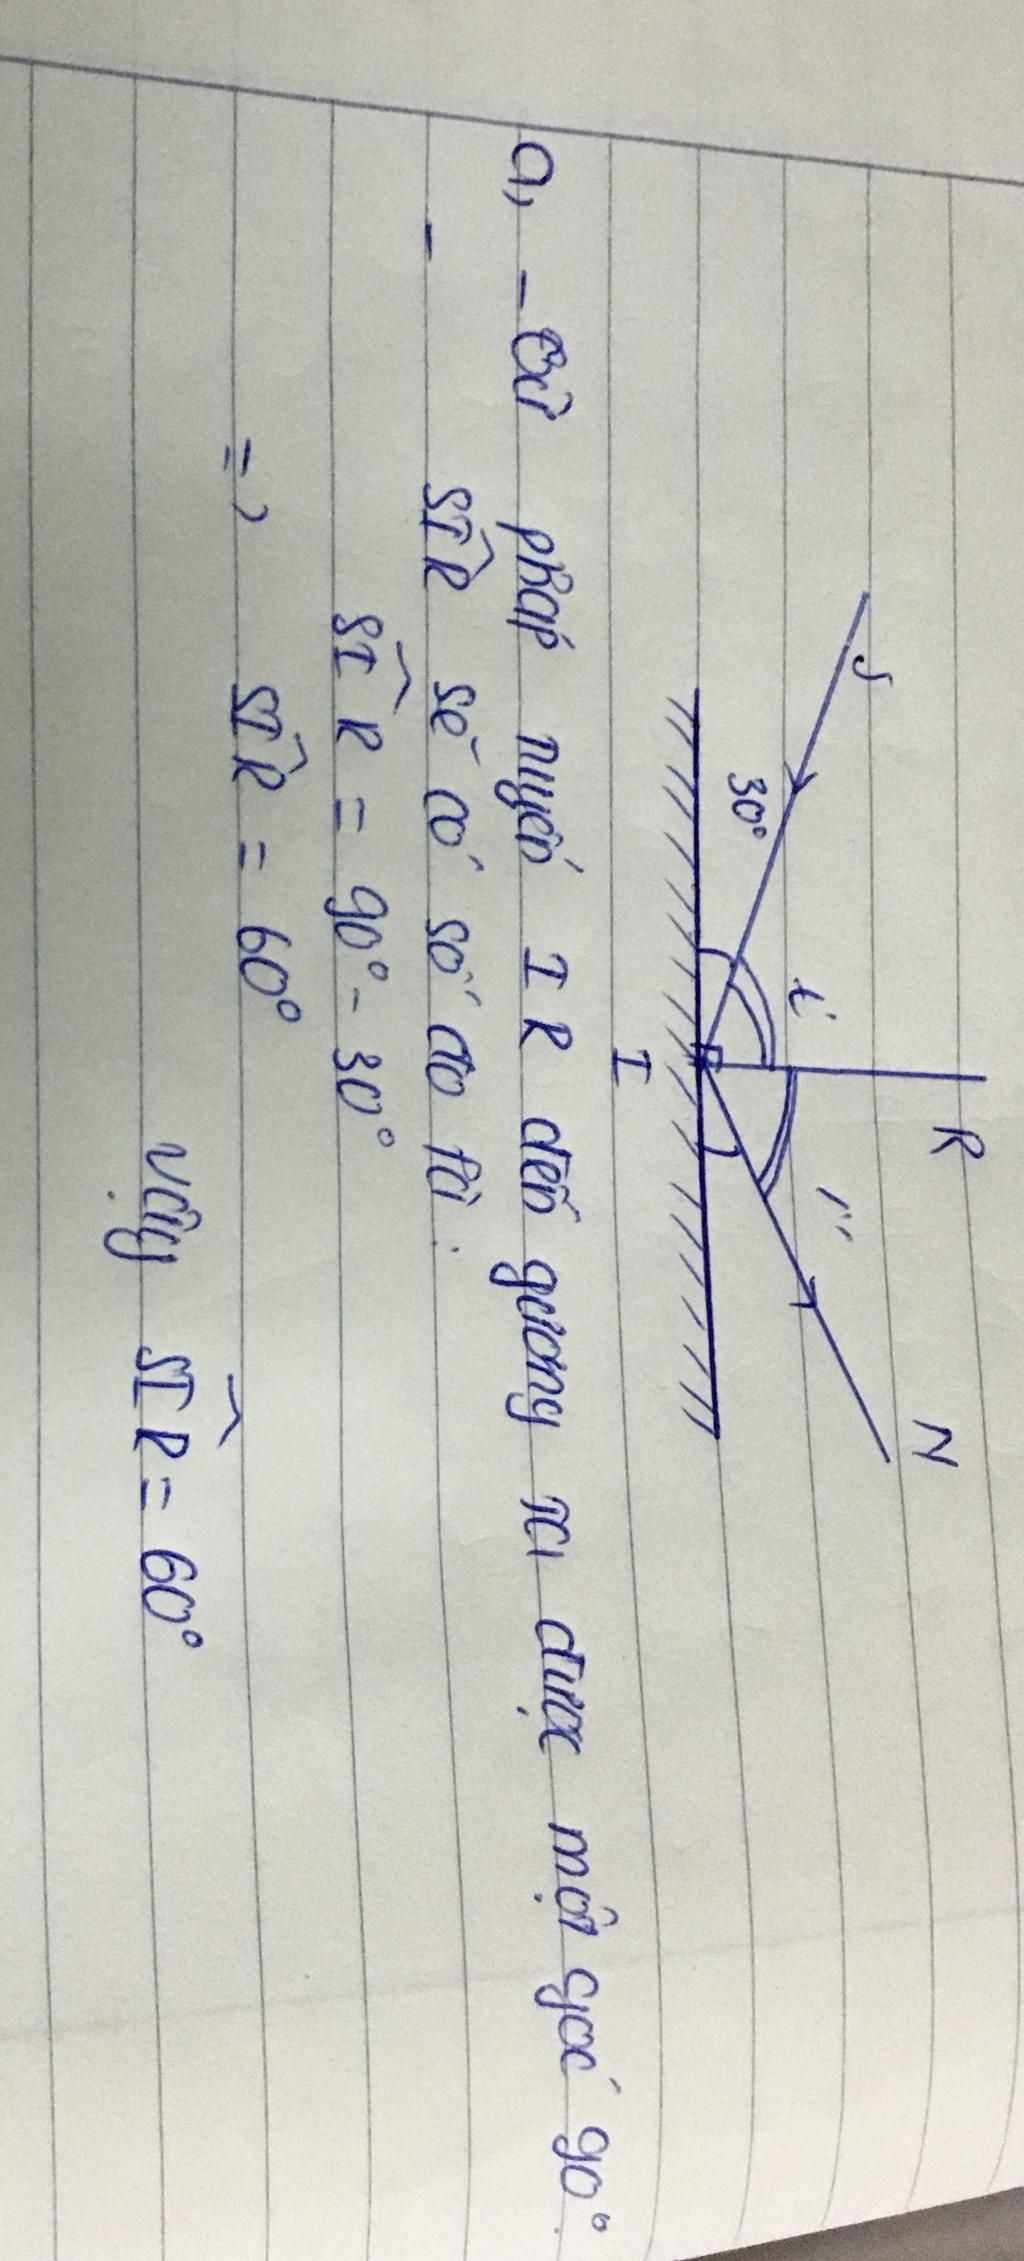 S
R
N
30°
i
i'
I
a, - Từ pháp tuyến IR đến gương ta được một góc 90°
- SIR sẽ có số đo là :
SIR = 90° - 30°
=> SIR = 60°
Vậy SIR = 60°